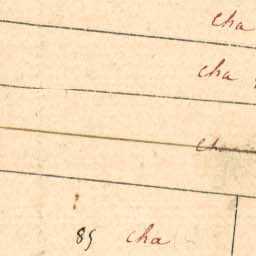 cha
cha
cha
85 cha